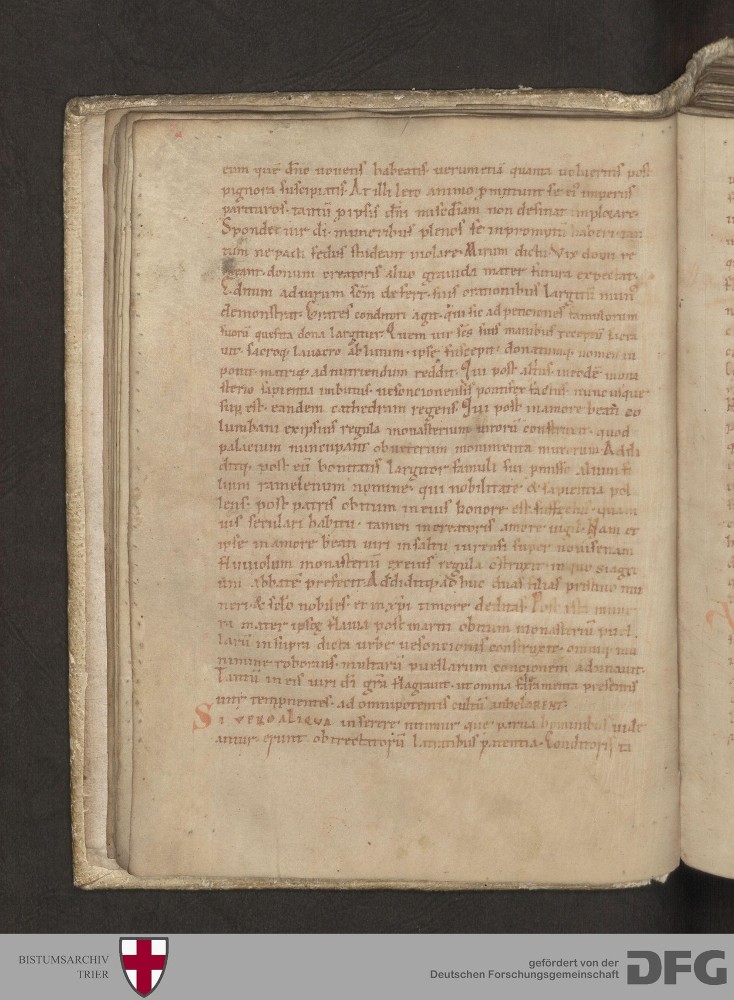 eum quē dn̄o uoueris habeatis uerumetiā quanta uolueritis post
pignora suscipiatis. At illi leto animo ꝓmittunt se ei' imperiis
parituros. tantū ꝓ ipsis dn̄i misc̄diam non desinat implorare.
Spondet uir di. muneribus plenos se inpromptu haberi. tan
tum ne pacti fedus studeant uiolare. Mirum dictu. Vix domū re
geant. donum creatoris aluo grauida mater futura expectat.
Editum ad uirum sc̄m defert. suis orationibus largitū mun'
demonstrat. Grates conditori agit. qui sic ad peticiones famulorum
suorū quesita dona largitur. Quem uir sc̄s suis manibus receptū
uit. sacroq; lauacro ablutum. ipse suscepit. donatumq; nomen in
ponit. matriq; ad nutriendum reddit. Qui post altus in eodē mona
sterio sapientia imbutus. uesoncionensis pontifex factus. nunc usque
sup est. eandem cathedram regens. Qui post in amore beati co
lumbani ex ipsius regula monasterium uirorū construxit. quod
palatium nuncupant ob ueterum monimenta murorum. Addi
ditq; post eū bonitatis largitor famuli sui ꝓmisso alium fi
lium ramelenum nomine. qui nobilitate & sapientia pol
lens. post patris obitum in eius honore est suffectus. quam
uis seculari habitu. tamen in creatoris amore uigil. Nam et
ipse in amore beati uiri in saltu iurensi super nouisenam
fluuiolum monasteriū ex eius regula ostruxit. in quo siagri
um abbatē prefecit. Addiditq; adhuc duas filias pristino mu
neri. & sclo nobiles. et in xp̄i timore deditas. Post ista mune
ra mater ipsoꝝ flauia post mariti obitum monasteriū puel
larū in supra dicta urbe uesoncionensi construxit. omniq; mu
nimine roborans. multarū puellarum concionem adunauit.
Tantū in eis uiri di gr̄a flagrauit. ut omnia falsamenta presentis
uite tempnentes. ad omnipotentis cultū anhelarent.
Si vero aliqua inserere nitimur. que parua hominibus uide
antur. erunt obtrectatorū latratibus patentia. Conditoris ta
BISTUMSARCHIV
TRIER
gefördert von der
Deutschen Forschungsgemeinschaft
DFG